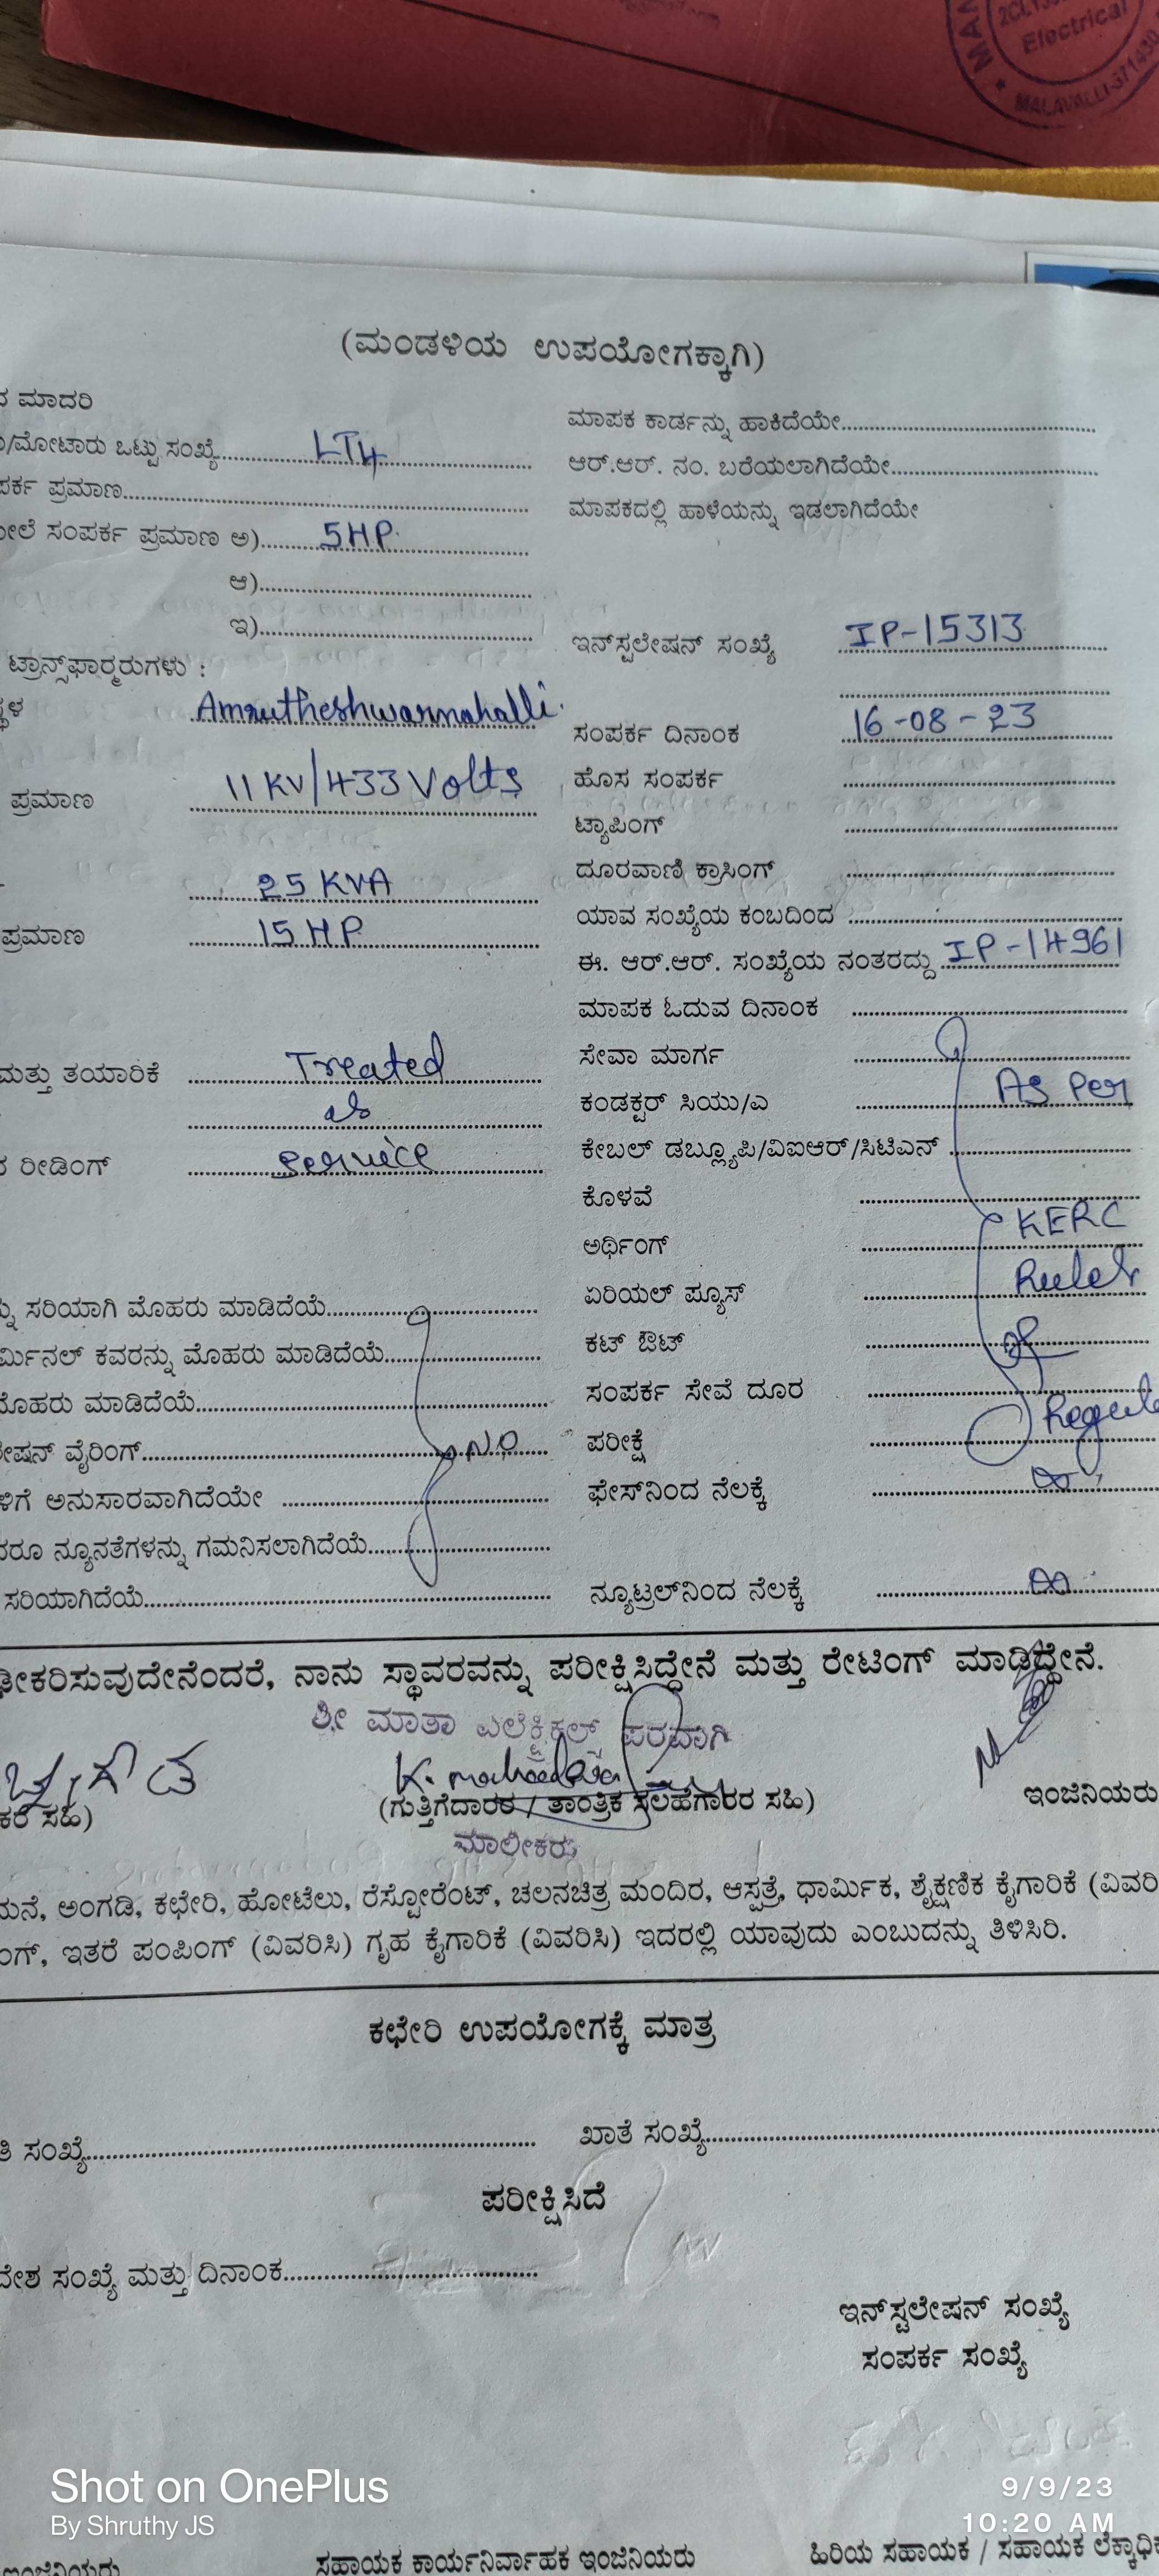 Electrical
MALAVALLI-571430
(ಮಂಡಳಿಯ ಉಪಯೋಗಕ್ಕಾಗಿ)
ಮಾದರಿ
/ಮೋಟಾರು ಒಟ್ಟು ಸಂಖ್ಯೆ LT4
ಪರ್ಕ ಪ್ರಮಾಣ
ಮೇಲೆ ಸಂಪರ್ಕ ಪ್ರಮಾಣ ಅ) 5HP
ಆ)
ಇ)
ಟ್ರಾನ್ಸ್‌ಫಾರ್ಮರುಗಳು :
ಸ್ಥಳ Amrutheshwarnahalli.
ಪ್ರಮಾಣ 11 KV/433 Volts
25 KVA
ಪ್ರಮಾಣ 15 HP
ಮತ್ತು ತಯಾರಿಕೆ Treated
as
ರೀಡಿಂಗ್ Service
ಸರಿಯಾಗಿ ಮೊಹರು ಮಾಡಿದೆಯೆ
ರ್ಮಿನಲ್ ಕವರನ್ನು ಮೊಹರು ಮಾಡಿದೆಯೆ
ಮೊಹರು ಮಾಡಿದೆಯೆ
ೇಷನ್ ವೈರಿಂಗ್
ಳಿಗೆ ಅನುಸಾರವಾಗಿದೆಯೇ
ದರೂ ನ್ಯೂನತೆಗಳನ್ನು ಗಮನಿಸಲಾಗಿದೆಯೆ
ಸರಿಯಾಗಿದೆಯೆ
ಮಾಪಕ ಕಾರ್ಡನ್ನು ಹಾಕಿದೆಯೇ
ಆರ್.ಆರ್. ನಂ. ಬರೆಯಲಾಗಿದೆಯೇ
ಮಾಪಕದಲ್ಲಿ ಹಾಳೆಯನ್ನು ಇಡಲಾಗಿದೆಯೇ
ಇನ್‌ಸ್ಟಲೇಷನ್ ಸಂಖ್ಯೆ IP-15313
ಸಂಪರ್ಕ ದಿನಾಂಕ 16-08-23
ಹೊಸ ಸಂಪರ್ಕ
ಟ್ಯಾಪಿಂಗ್
ದೂರವಾಣಿ ಕ್ರಾಸಿಂಗ್
ಯಾವ ಸಂಖ್ಯೆಯ ಕಂಬದಿಂದ
ಈ. ಆರ್.ಆರ್. ಸಂಖ್ಯೆಯ ನಂತರದ್ದು IP-14961
ಮಾಪಕ ಓದುವ ದಿನಾಂಕ
ಸೇವಾ ಮಾರ್ಗ
ಕಂಡಕ್ಟರ್ ಸಿಯು/ಎ As Per
ಕೇಬಲ್ ಡಬ್ಲ್ಯೂಪಿ/ವಿಐಆರ್/ಸಿಟಿಎನ್
ಕೊಳವೆ
ಅರ್ಥಿಂಗ್ KERC
ಏರಿಯಲ್ ಪ್ಯೂಸ್ Rules
ಕಟ್ ಔಟ್ of
ಸಂಪರ್ಕ ಸೇವೆ ದೂರ
ಪರೀಕ್ಷೆ
ಫೇಸ್‌ನಿಂದ ನೆಲಕ್ಕೆ ∞
ನ್ಯೂಟ್ರಲ್‌ನಿಂದ ನೆಲಕ್ಕೆ ∞
ೀಕರಿಸುವುದೇನೆಂದರೆ, ನಾನು ಸ್ಥಾವರವನ್ನು ಪರೀಕ್ಷಿಸಿದ್ದೇನೆ ಮತ್ತು ರೇಟಿಂಗ್ ಮಾಡಿದ್ದೇನೆ.
ಶ್ರೀ ಮಾತಾ ಎಲೆಕ್ಟ್ರಿಕಲ್ಸ್ ಪರವಾಗಿ
ಕರ ಸಹಿ) (ಗುತ್ತಿಗೆದಾರರ / ತಾಂತ್ರಿಕ ಸಲಹೆಗಾರರ ಸಹಿ) ಇಂಜಿನಿಯರು
ಮಾಲೀಕರು
ಮನೆ, ಅಂಗಡಿ, ಕಛೇರಿ, ಹೋಟೆಲು, ರೆಸ್ಟೋರೆಂಟ್, ಚಲನಚಿತ್ರ ಮಂದಿರ, ಆಸ್ಪತ್ರೆ, ಧಾರ್ಮಿಕ, ಶೈಕ್ಷಣಿಕ ಕೈಗಾರಿಕೆ (ವಿವರಿ
ಂಗ್, ಇತರೆ ಪಂಪಿಂಗ್ (ವಿವರಿಸಿ) ಗೃಹ ಕೈಗಾರಿಕೆ (ವಿವರಿಸಿ) ಇದರಲ್ಲಿ ಯಾವುದು ಎಂಬುದನ್ನು ತಿಳಿಸಿರಿ.
ಕಛೇರಿ ಉಪಯೋಗಕ್ಕೆ ಮಾತ್ರ
ತಿ ಸಂಖ್ಯೆ ಖಾತೆ ಸಂಖ್ಯೆ
ಪರೀಕ್ಷಿಸಿದೆ
ದೇಶ ಸಂಖ್ಯೆ ಮತ್ತು ದಿನಾಂಕ
ಇನ್‌ಸ್ಟಲೇಷನ್ ಸಂಖ್ಯೆ
ಸಂಪರ್ಕ ಸಂಖ್ಯೆ
Shot on OnePlus
By Shruthy JS
9/9/23
10:20 AM
ಇಂಜಿನಿಯರು ಸಹಾಯಕ ಕಾರ್ಯನಿರ್ವಾಹಕ ಇಂಜಿನಿಯರು ಹಿರಿಯ ಸಹಾಯಕ / ಸಹಾಯಕ ಲೆಕ್ಕಾಧಿಕ